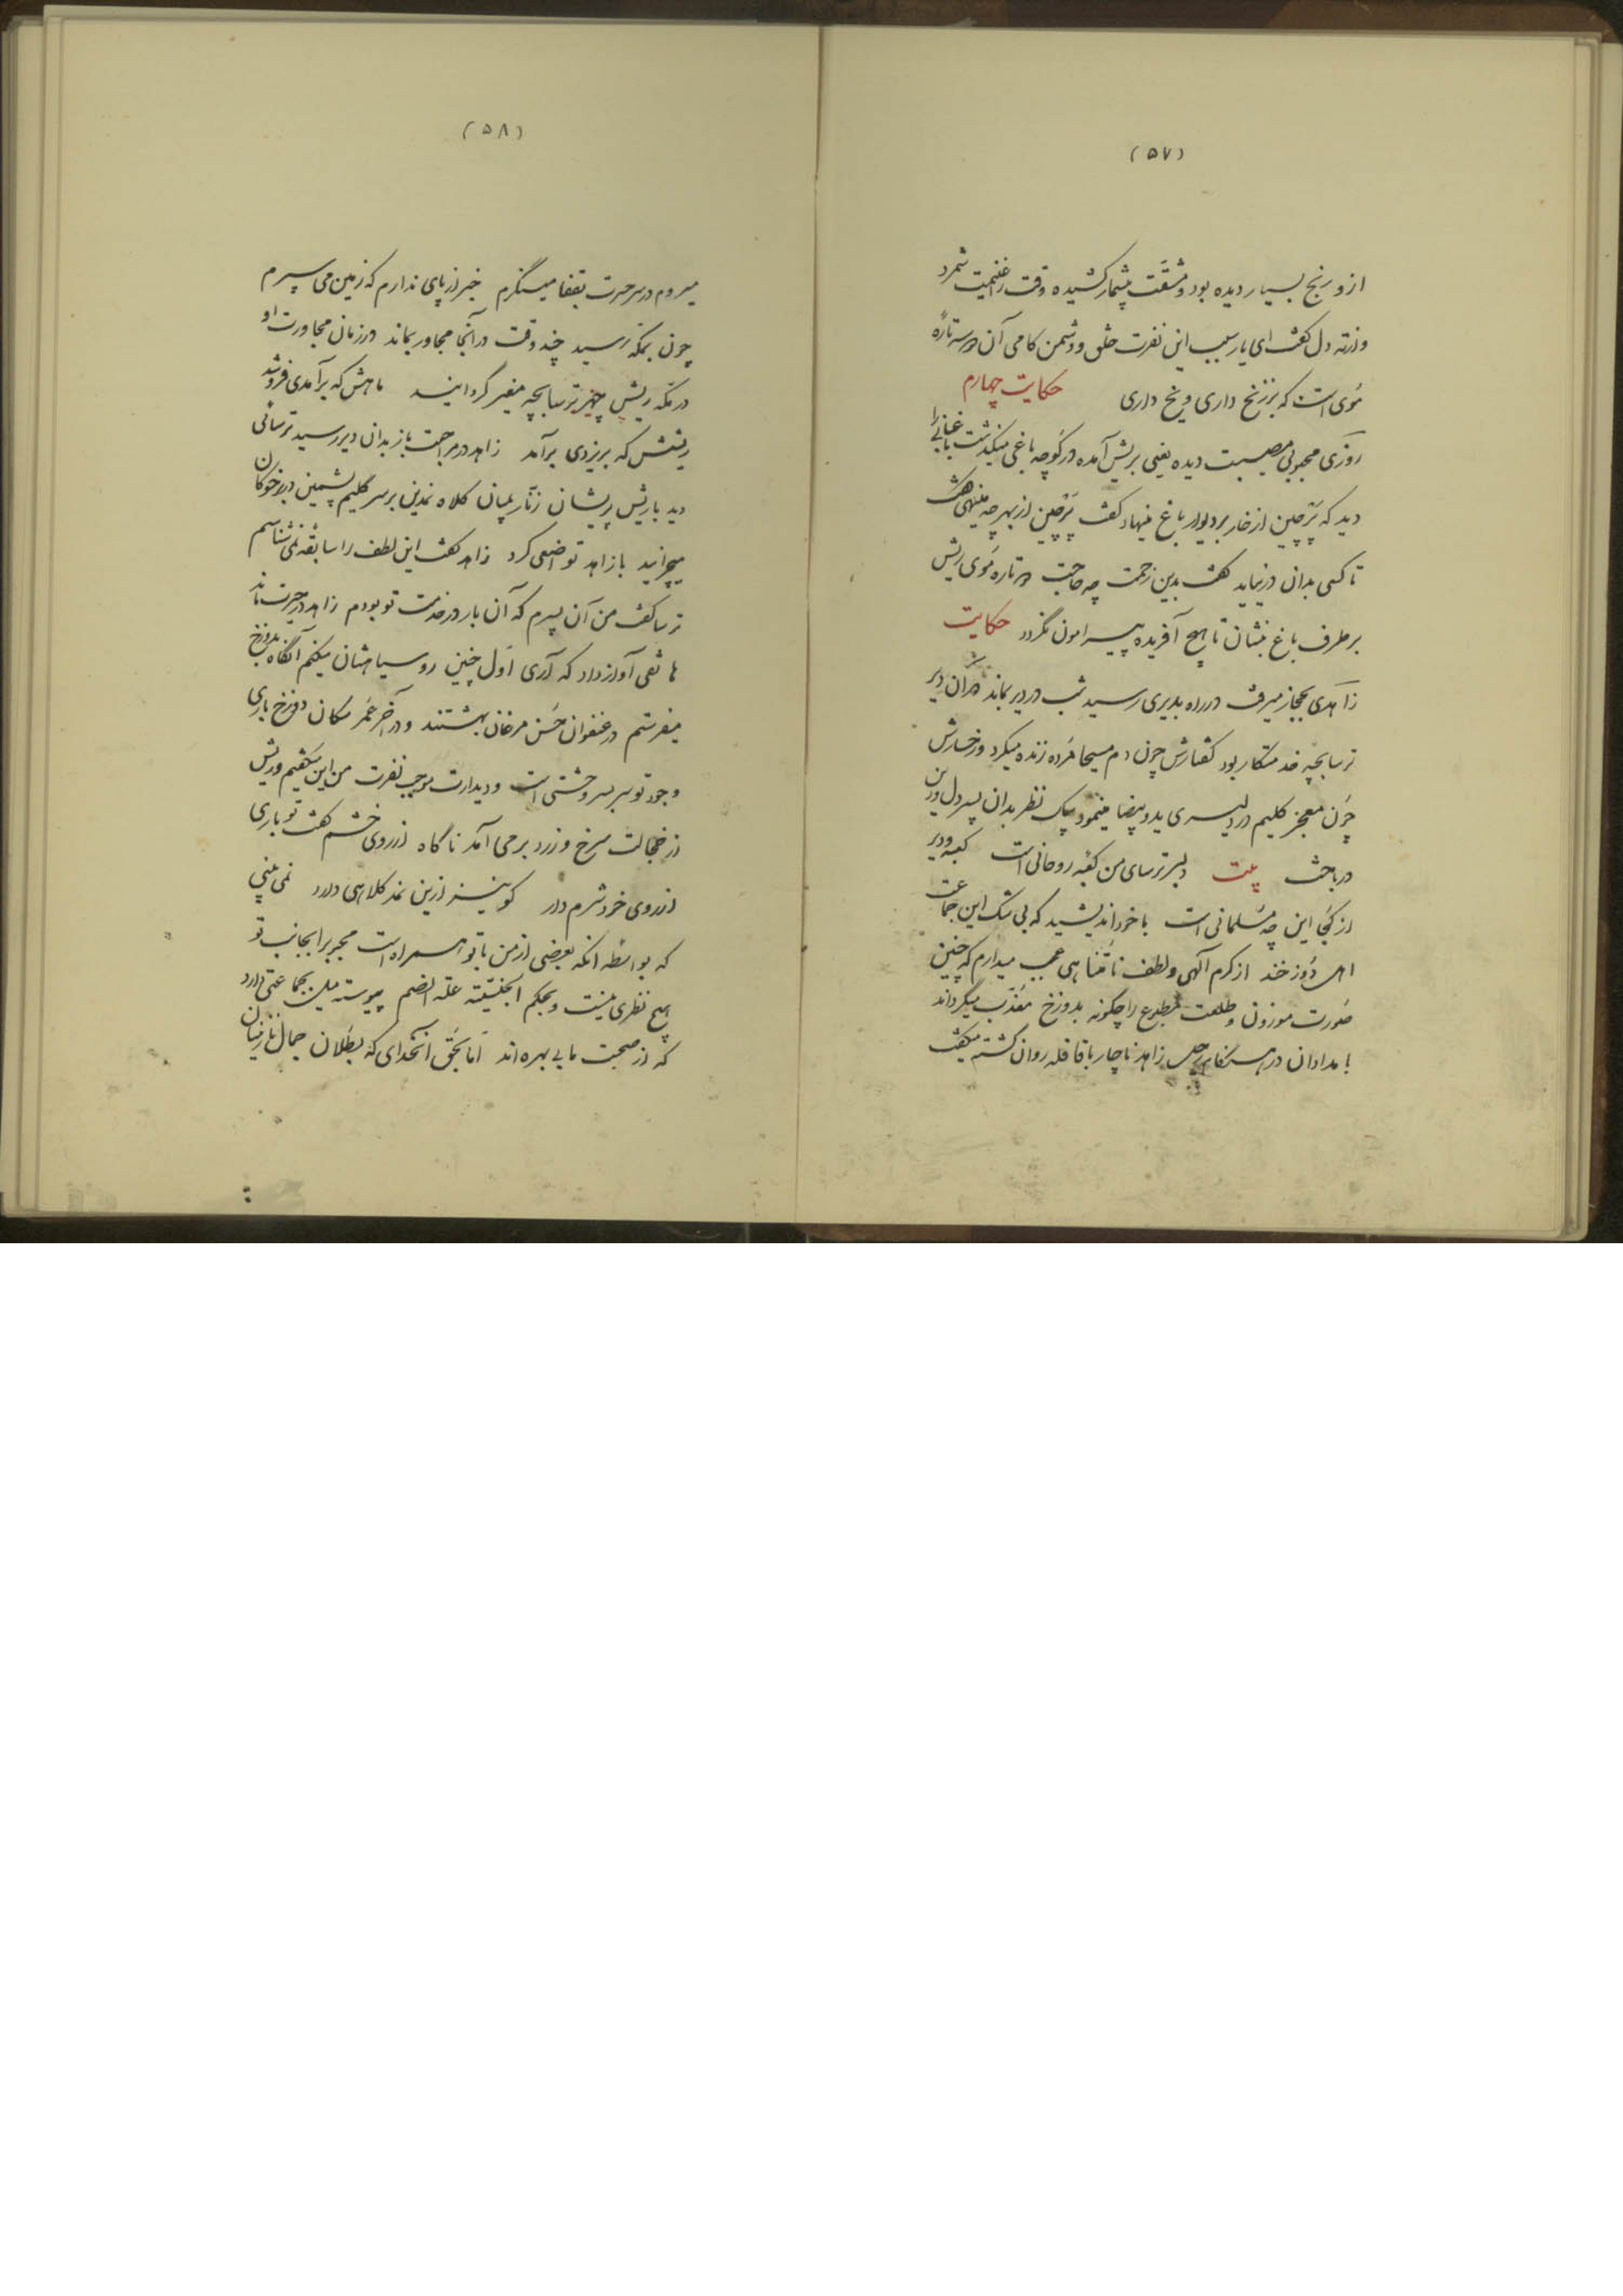 (۵۷)
ازو رنج بسیار دیده بود و مشقت بیشمار کشیده وقت را غنیمت شمرد
و از ته دل گفت ای یار سبب این نفرت خلق و دشمن کامی آن دو سه تاره
موی است که بر زنخ داری و یخ داری حکایت چهارم
روزی محبوبی مصیبت دیده یعنی بریش آمده در کوچه باغی میگذشت باغبانی را
دید که پرچین از خار بر دیوار باغ مینهاد گفت پرچین از بهر چه مینهی گفت
تا کسی بدان در نیاید گفت بدین زحمت چه حاجت دو تاره موی ریش
بر طرف باغ بنشان تا هیچ آفریده پیرامون نگردد حکایت
زاهدی بحجاز میرفت در راه بدیری رسید شب در دیر بماند در آن دیر
ترسابچه خدمتکار بود گفتارش چون دم مسیحا مرده زنده میکرد و رخسارش
چون معجز کلیم در دلبری ید بیضا مینمود بیک نظر بدان پسر دل و دین
در باخت بیت دلبر ترسای من کعبه روحانی است کعبه و دیر
از کجا این چه مسلمانی است با خود اندیشید که بی شک این جماعت
اهل دوزخند از کرم الهی و لطف نامتناهی عجب میدارم که چنین
صورت موزون و طلعت مطبوع را چگونه بدوزخ معذب میگرداند
بامدادان در هنگام رحیل زاهد ناچار با قافله روان گشته میگفت
(۵۸)
میروم در سر حسرت بقفا مینگرم خبر از پای ندارم که زمین می سپرم
چون بمکه رسید چند وقت در آنجا مجاور بماند در زمان مجاورت او
در مکه ریش چهر ترسابچه متغیر گردانید ماهش که برآمدی فروشد
ریشش که بریزدی برآمد زاهد در مراجعت باز بدان دیر رسید ترسائی
دید با ریش پریشان زنار بمیان کلاه نمدین بر سر گلیم پشمین در بر خوکان
میچرانید با زاهد تواضعی کرد زاهد گفت این لطف را سابقه نمی شناسم
ترسا گفت من آن پسرم که آن بار در خدمت تو بودم زاهد در حیرت ماند
هاتفی آواز داد که آری اول چنین روسیاهشان میکنم آنگاه بدوزخ
میفرستم در عنفوان حسن مرغان بهشتند و در آخر عمر سگان دوزخ باری
وجود تو سر بسر وحشتی است و دیدارت موجب نفرت من این میگفتم و ریش
از خجالت سرخ و زرد بر می آمد ناگاه از روی خشم گفت تو باری
از روی خود شرم دار کو نیز ازین نمد کلاهی دارد نمی بینی
که بواسطه آنکه بعضی از من با تو همراه است محبوب را بجانب تو
هیچ نظری نیست و بحکم الجنسیة علة الضم پیوسته میل بجماعتی دارد
که از صحبت ما بی بهره اند اما بحق آنخدای که بطلان جمال نازنینان